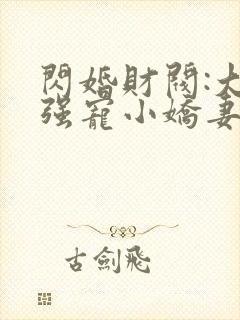 閃婚財閥:大
强寵小嬌妻
古劍飛